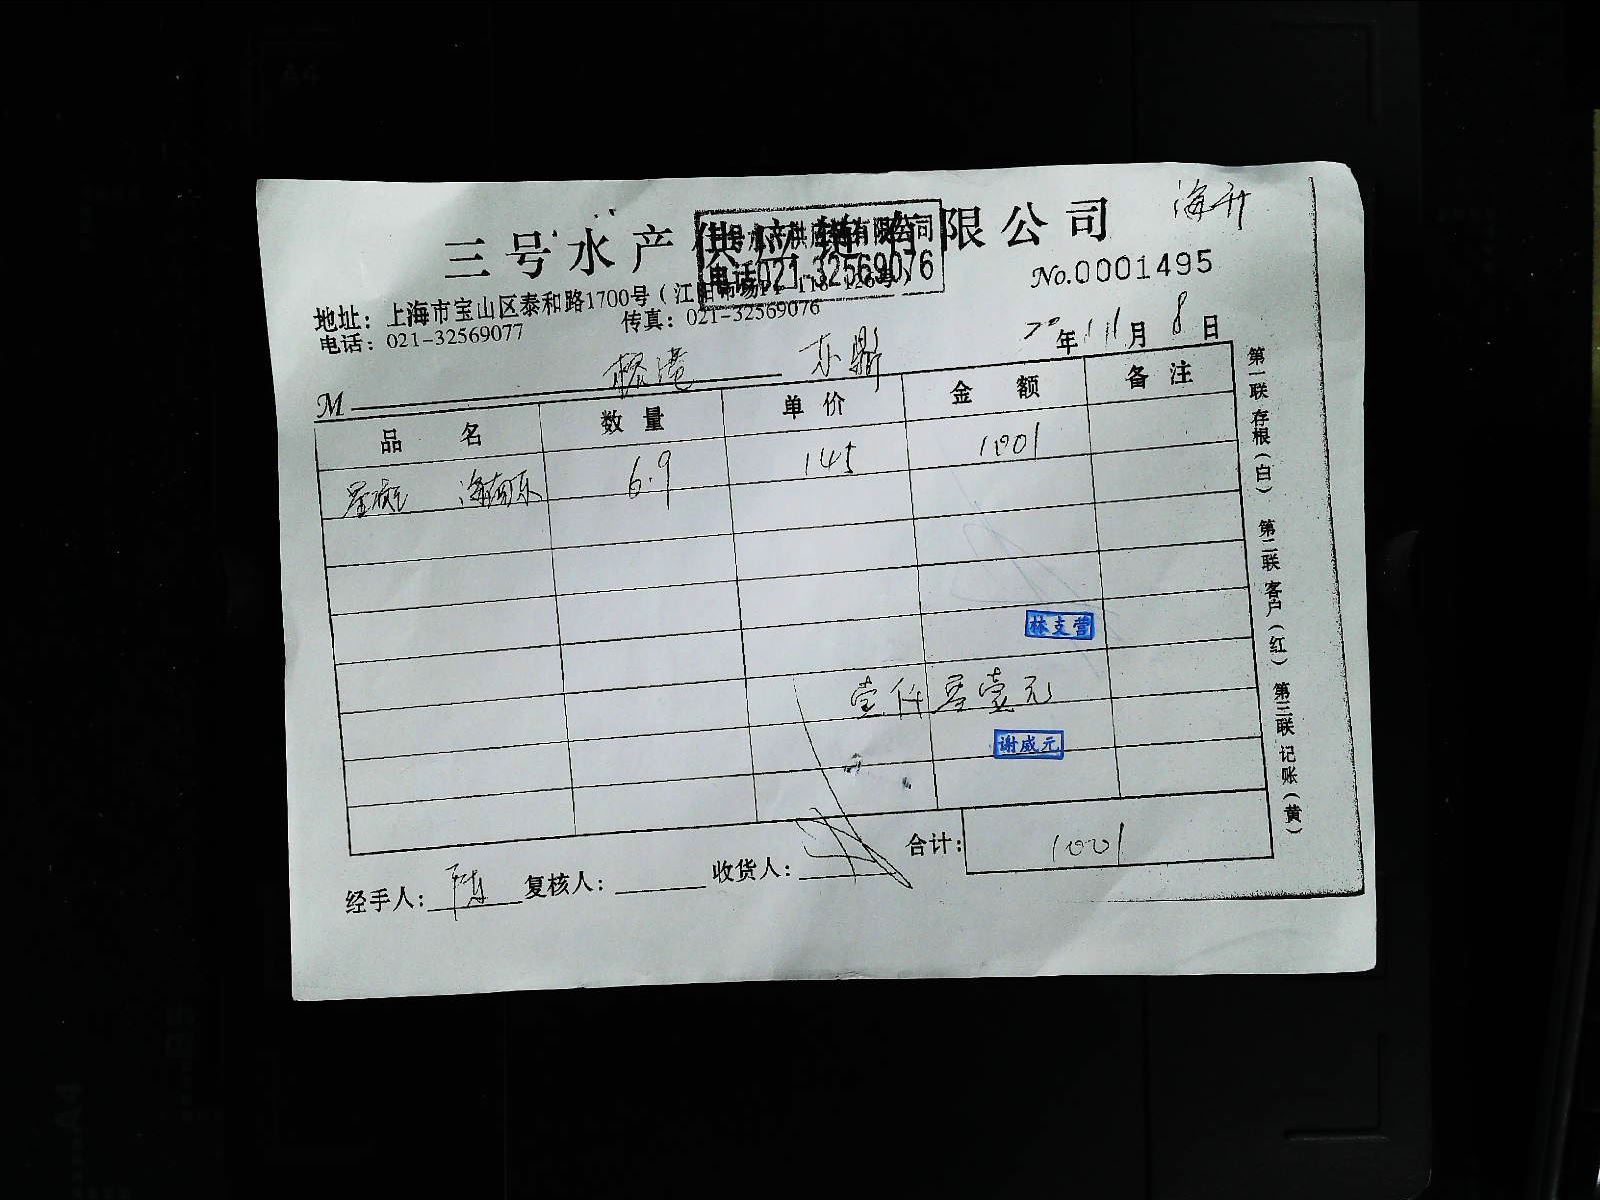 海升
三号水产供应链有限公司
三号水产供应链有限公司
电话021-32569076
No.0001495
地址：上海市宝山区泰和路1700号（江阳市场
电话：021-32569077 传真：021-32569076
20年11月8日
M 东
品名 数量 单价 金额 备注
星斑 6.9 145 1001
林支营
壹仟零壹元
谢威元
合计： 1001
经手人： 陈 复核人： 收货人：
第一联 存根（白） 第二联 客户（红） 第三联 记账（黄）